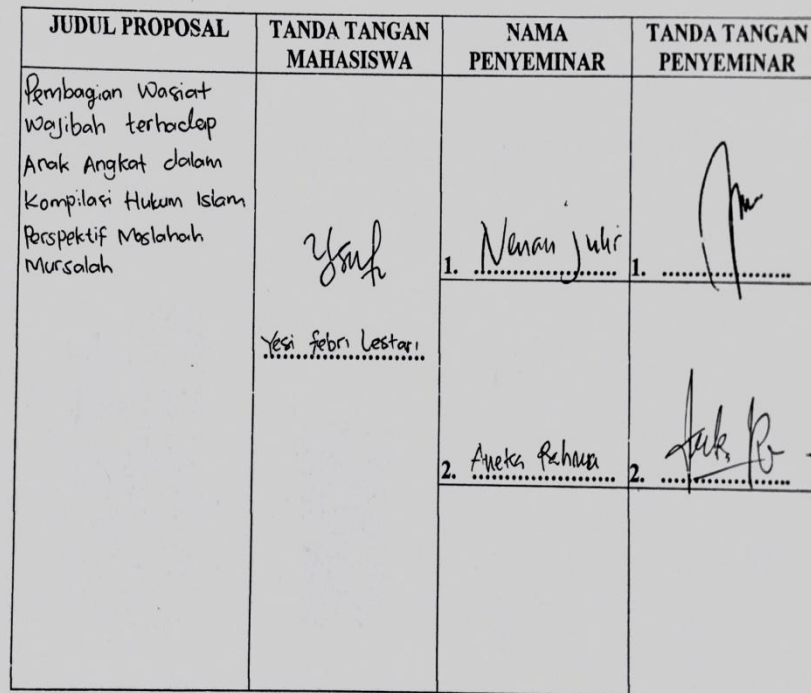 JUDUL PROPOSAL
TANDA TANGAN
MAHASISWA
NAMA
PENYEMINAR
TANDA TANGAN
PENYEMINAR
Pembagian Wasiat
Wajibah terhadap
Anak Angkat dalam
Kompilasi Hukum Islam
Perspektif Maslahah
Mursalah
Yesi febri Lestari
1. Nenan Julir
1.
2. Aneka Rahma
2.